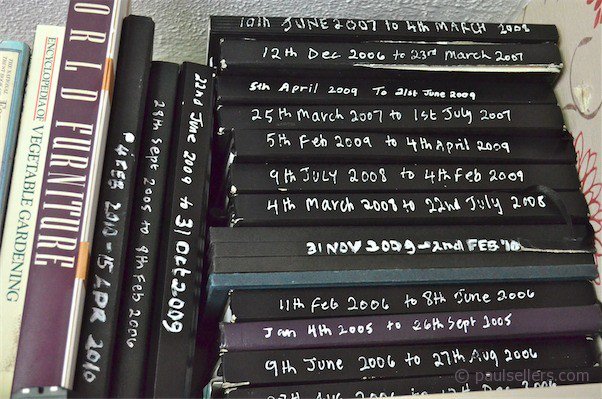 ENCYCLOPEDIA OF
VEGETABLE GARDENING
ORLD FURNITURE
4 FEB 2010 - 15 APR 2010
28th Sept 2005 to 9th Feb 2006
22nd June 2009 to 31 OCT 2009
10th JUNE 2007 to 4th MARCH 2008
12th Dec 2006 to 23rd March 2007
5th April 2009 To 21st June 2009
25th March 2007 to 1st July 2007
5th Feb 2009 to 4th April 2009
9th July 2008 to 4th Feb 2009
4th March 2008 to 22nd July 2008
31 NOV 2009 - 2nd FEB '10
11th Feb 2006 to 8th June 2006
Jan 4th 2005 to 26th Sept 2005
9th June 2006 to 27th Aug 2006
27th Aug 2006 to 12th Dec 2006
© paulsellers.com